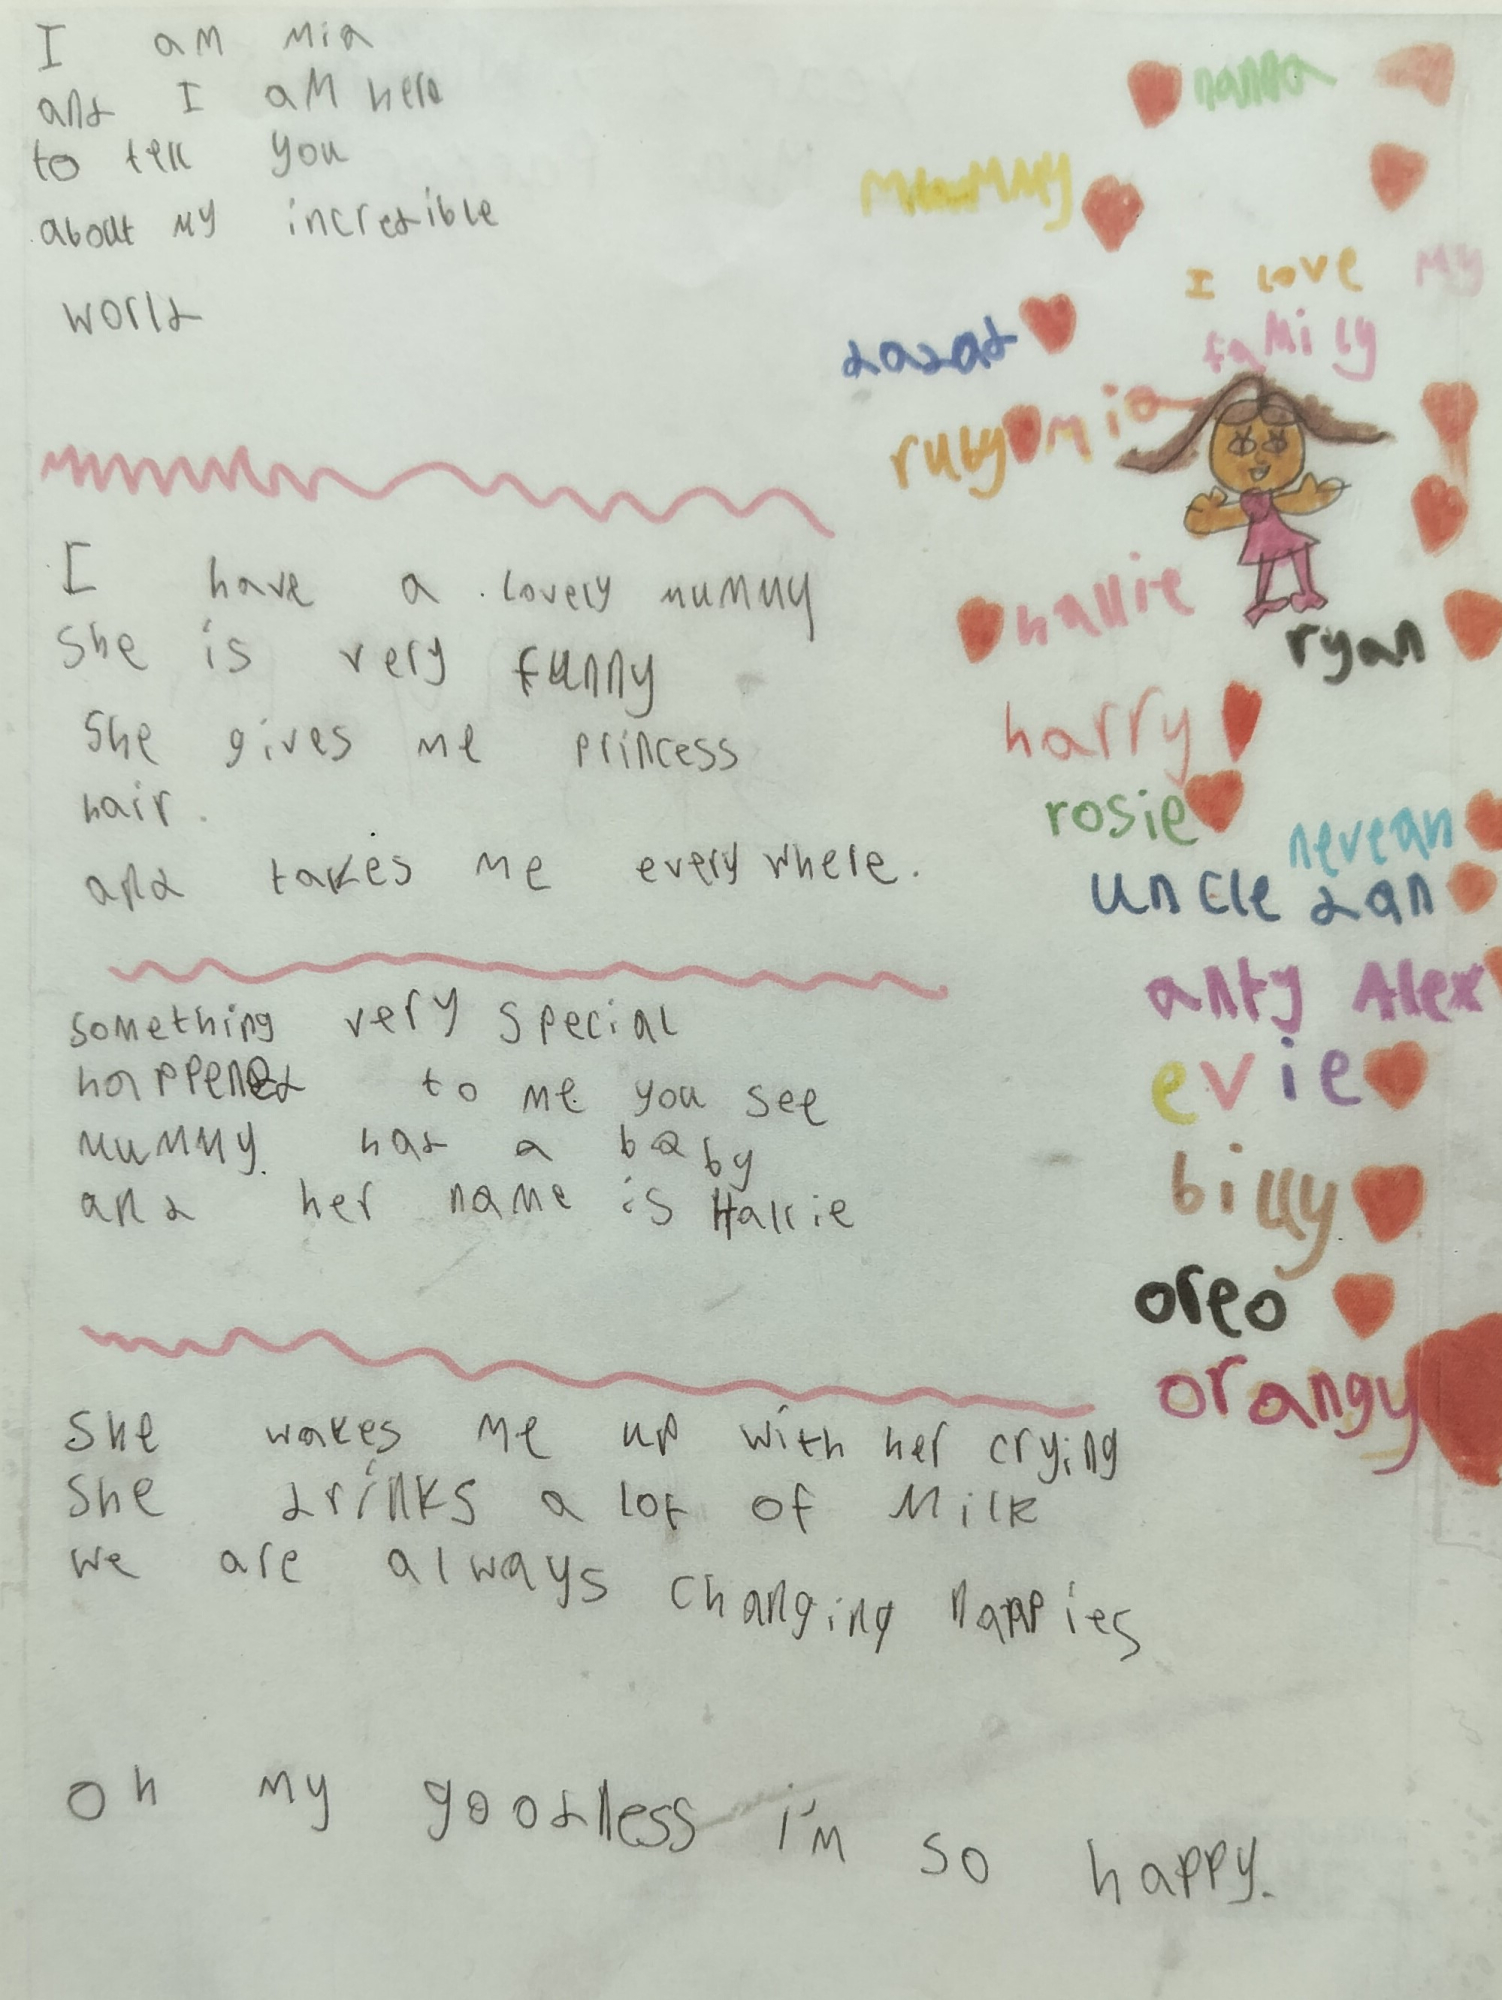 I am Mia
and I am here
to tell you
about my incredible
world
I have a lovely mummy
She is very funny
She gives me princess
hair.
and takes me everywhere.
something very special
happened to me you see
mummy had a baby
and her name is Hallie
She wakes me up with her crying
She drinks a lot of Milk
we are always changing nappies
oh my goodness i'm so happy.
nanna
Mummy
I love my
family
ruby mia
hallie
ryan
harry
rosie
nevean
uncle dan
anty Alex
evie
billy
oreo
orangy